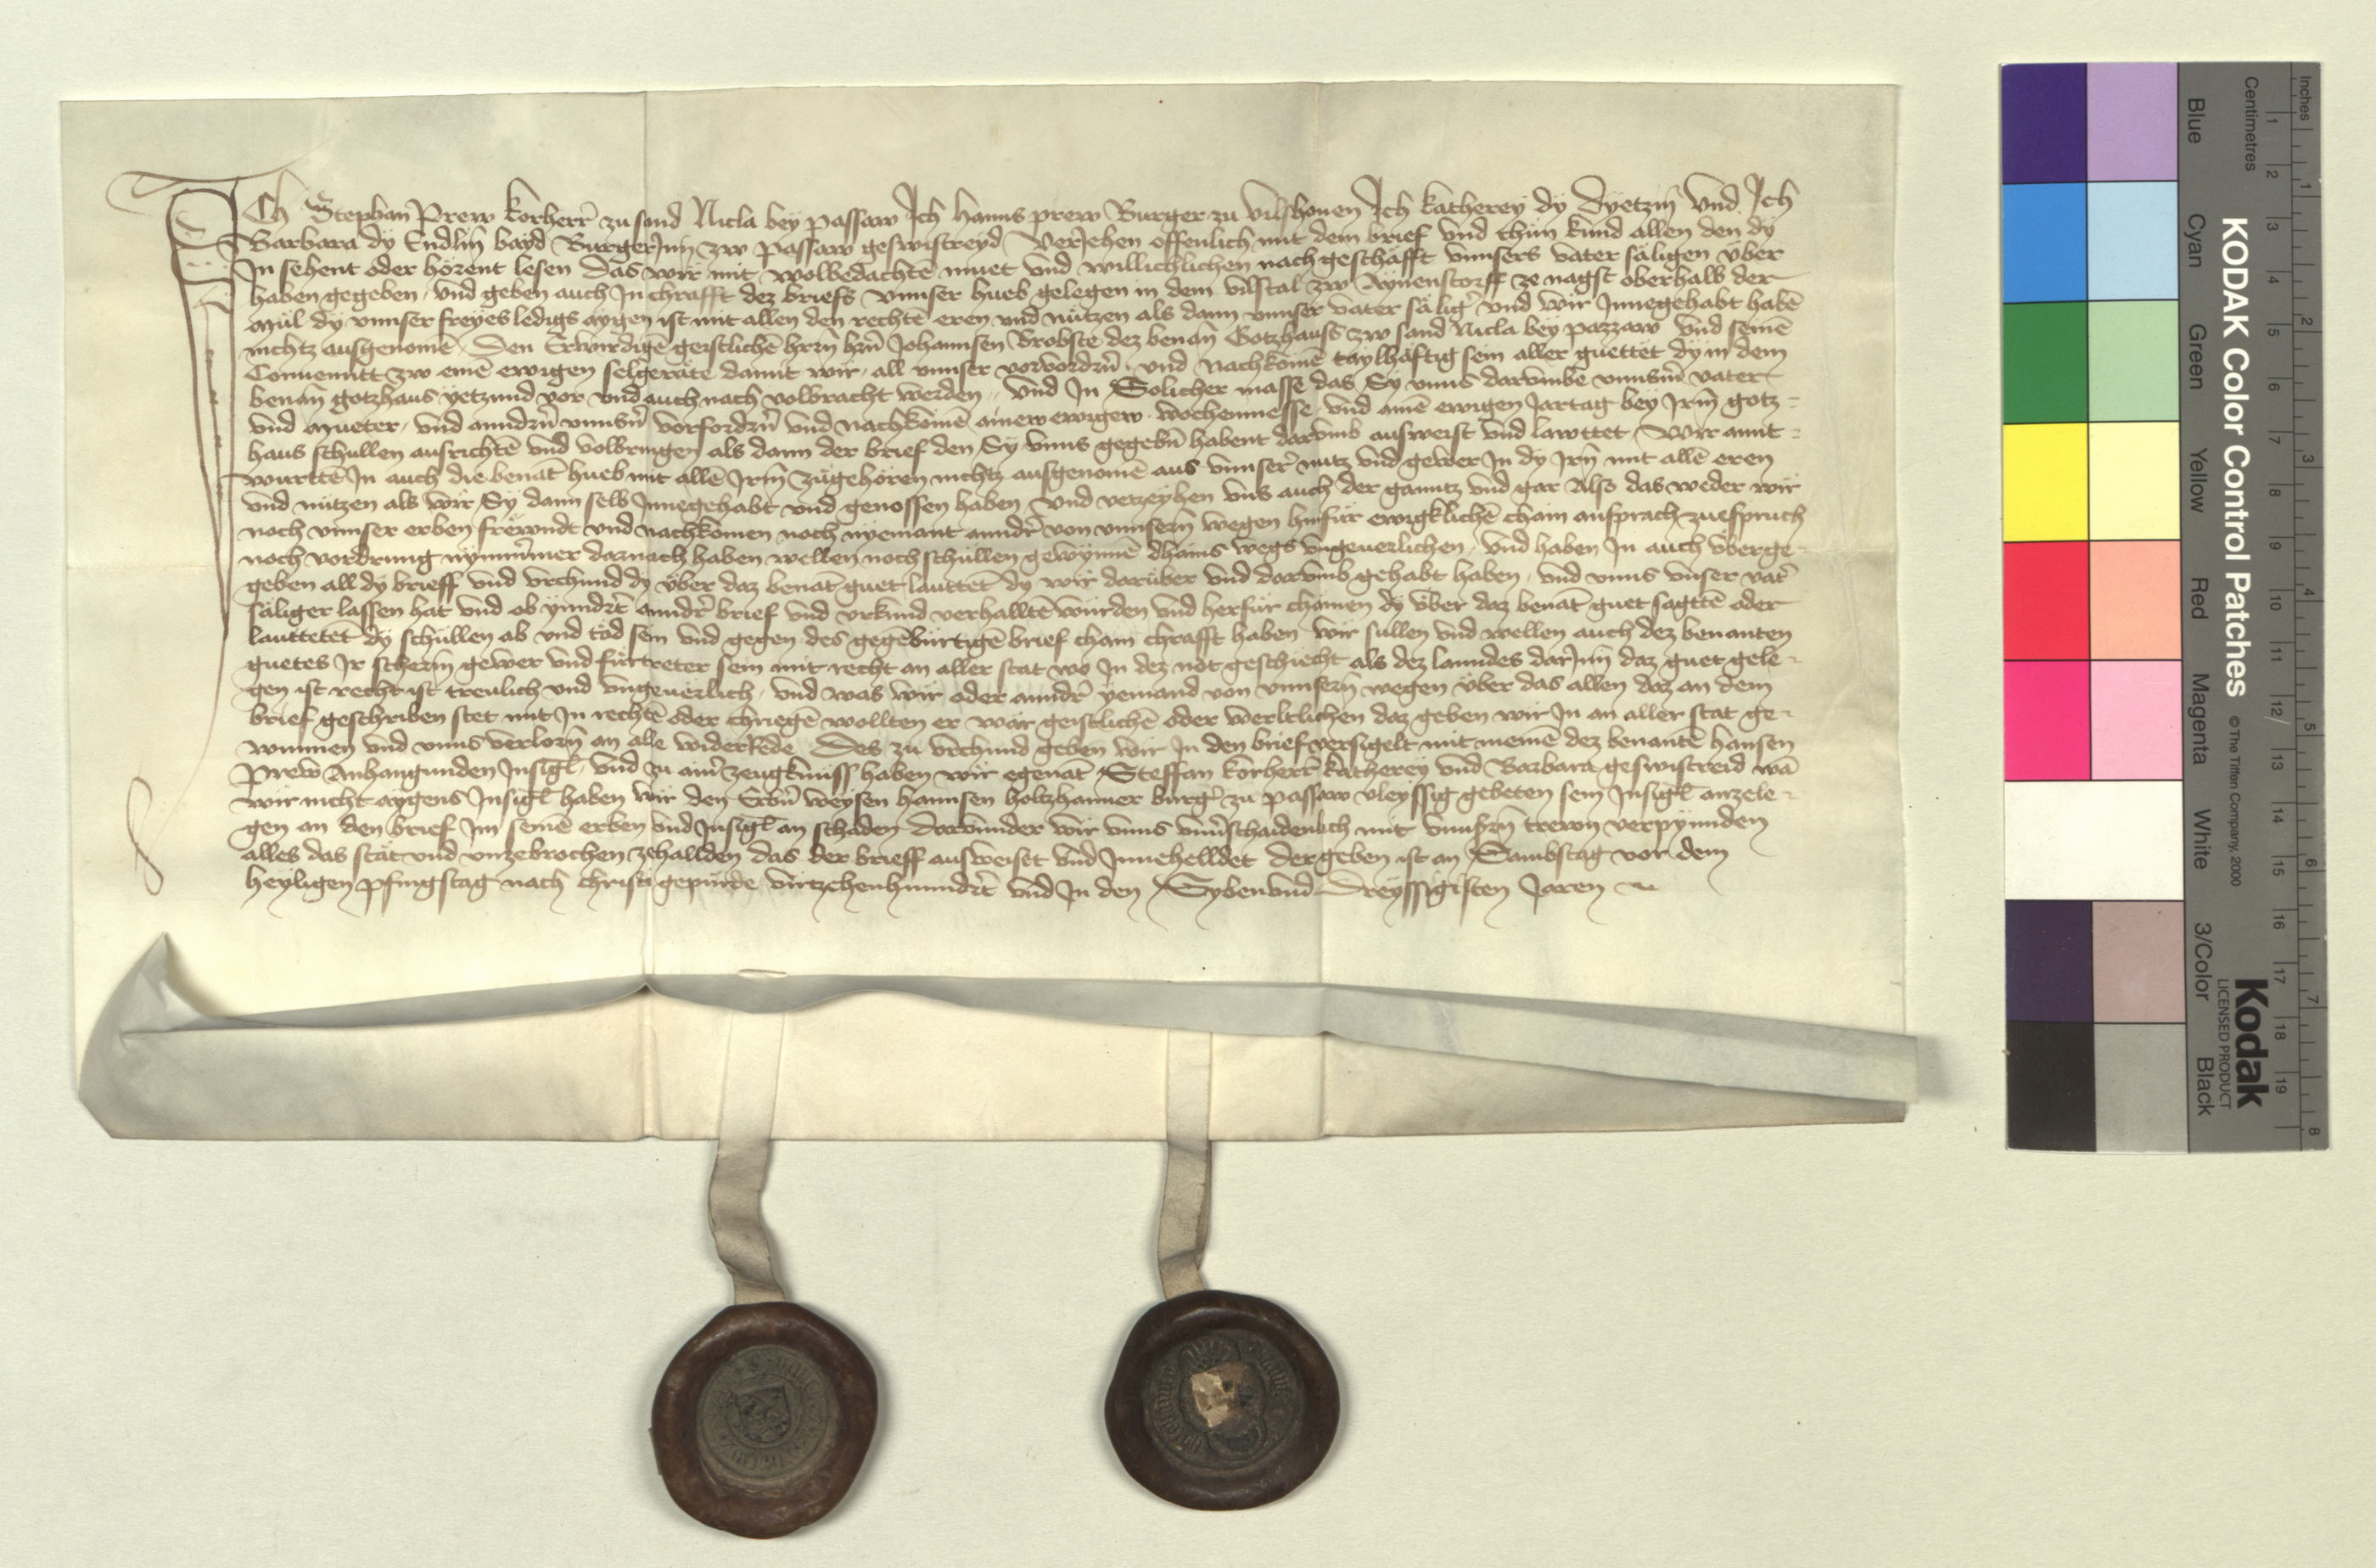 ICh Stephan Prew korherr zu sand Nicla bey passaw Ich hanns prew Burger zu vilshouen Ich katherey dy Dyetzin vnd Ich
Barbara dy Endlin bayd Burgerinn zw passaw geswistreyd Veriehen offenlich mit dem brief vnd thun kund allen den dy
In sehent oder hörent lesen das wir mit wolbedachtē muet vnd willichlichen nach geschäfft vnnsers vater säligen über
haben gegeben vnd geben auch In chrafft dez briefs vnnser hueb gelegen in dem vilstal zw Aynenstorff ze nagst oberhalb der
Mül dy vnnser freyes ledigs aygen ist mit allen den rechtē eren vnd nützen als dann vnnser vater sälig' vnd wir Innegehabt habē
nichtz ausgenomē Den Erwirdigē geistlichē hrrn hrn Johannsen Brobste dez benan̄ Gotzhauss zw sand Nicla bey pazzaw vnd seinē
Conuenntt zw einē ewigen selgeräte damit wir all vnnser vorvordr̄n vnd nachkomē taylhäftig sein aller guettet dy in dem
benan̄ gotzhaus yetzund vor vnd auch nach volbracht werden vnd In Solicher masse das Sy vnns darvmbe vnnsm̄ vater
vnd Mueter vnd anndr̄n vnnsn̄ vorfordr̄n vnd nachkömē ainew ewigew wochenmesse vnd ainē ewigen Jartag bey Irm̄ gotz=
haus schullen ausrichtē vnd volbringen als dann der brief den Sy vnns gegebn̄ habent darvmb ausweist vnd lawttet Wir annt=
wurttē In auch die benāt hueb mit allē Irm̄ zugehören nichtz ausgenomē aus vnnser' nutz vnd gewer In dy Irn̄ mit allē eren
vnd nützen als wir Sy dann selb Innegehabt vnd genossen haben vnd verzeyhen vns auch der ganntz vnd gar Also das weder wir
noch vnnser erben frewndt vnd nachkömen noch nyemant anndr̄ von vnnsern̄ wegen hinfür ewigklichē chain ansprach zuespruch
noch vordrung nymmermer darnach haben wellen noch schullen gewynnē dhains wegs vngeuerlichen vnd haben In auch überge=
geben all dy brieff vnd vrchund dy über daz benāt guet lauttet dy wir darüber vnd darvmb gehabt haben vnd vnns vnser vat'
säliger lassen hat vnd ob ynndr̄t anndr̄ brief vnd vrkund verhalltē würden vnd herfür chämen dy über daz benāt guet sagttē oder
lauttetē dy schullen ab vnd töd sein vnd gegen des gegēbürtigē brief chain chrafft haben wir sullen vnd wellen auch dez benanten
guetes Ir scherm̄ gewer vnd fürtreter sein mit recht an aller stat wo In dez not geschiecht als dez lanndes darInn daz guet gele=
gen ist recht ist treulich vnd vngeuerlich vnd was wir oder anndr̄ yemand von vnnsern̄ wegen über das allen daz an dem
brief geschriben stet mit In rechtē oder chriegē wollten er wär geistlichē oder werltlichen daz geben wir In an aller stat ge=
wunnen vnd vnns verlorn̄ an alle widerRede Des zu vrchund geben wir In den brief versigelt mit meinē dez benantē hansen
Prew Anhangunden Insigl vnd zu aim̄ zeugknüss haben wir egenāt Steffan korherr katherey vnd Barbara geswistreid wā
wir nicht aygens Insigl haben wir den Erbn̄ weysen hannsen holtzhanner burg' zu passaw vleyssig gebeten sein Insigl anzele=
gen an den brief Im seinē erben vnd Insigl an schaden darvnder wir vnns vnuerschaidenlich mit vnnsern̄ trewn verpynnden
alles das stät vnd vnzebrochen zehallden das der brieff ausweiset vnd Innehelldet der geben ist an Sambstag vor dem
heyligen pfingstag nach christi gepurde virtzehenhunndr̄t vnd In den Syben vnd Dreyssigisten Jaren
KODAK Color Control Patches
© The Tiffen Company, 2000
Kodak
LICENSED PRODUCT
Inches 1 2 3 4 5 6 7 8
Centimetres 1 2 3 4 5 6 7 8 9 10 11 12 13 14 15 16 17 18 19
Blue Cyan Green Yellow Red Magenta White 3/Color Black